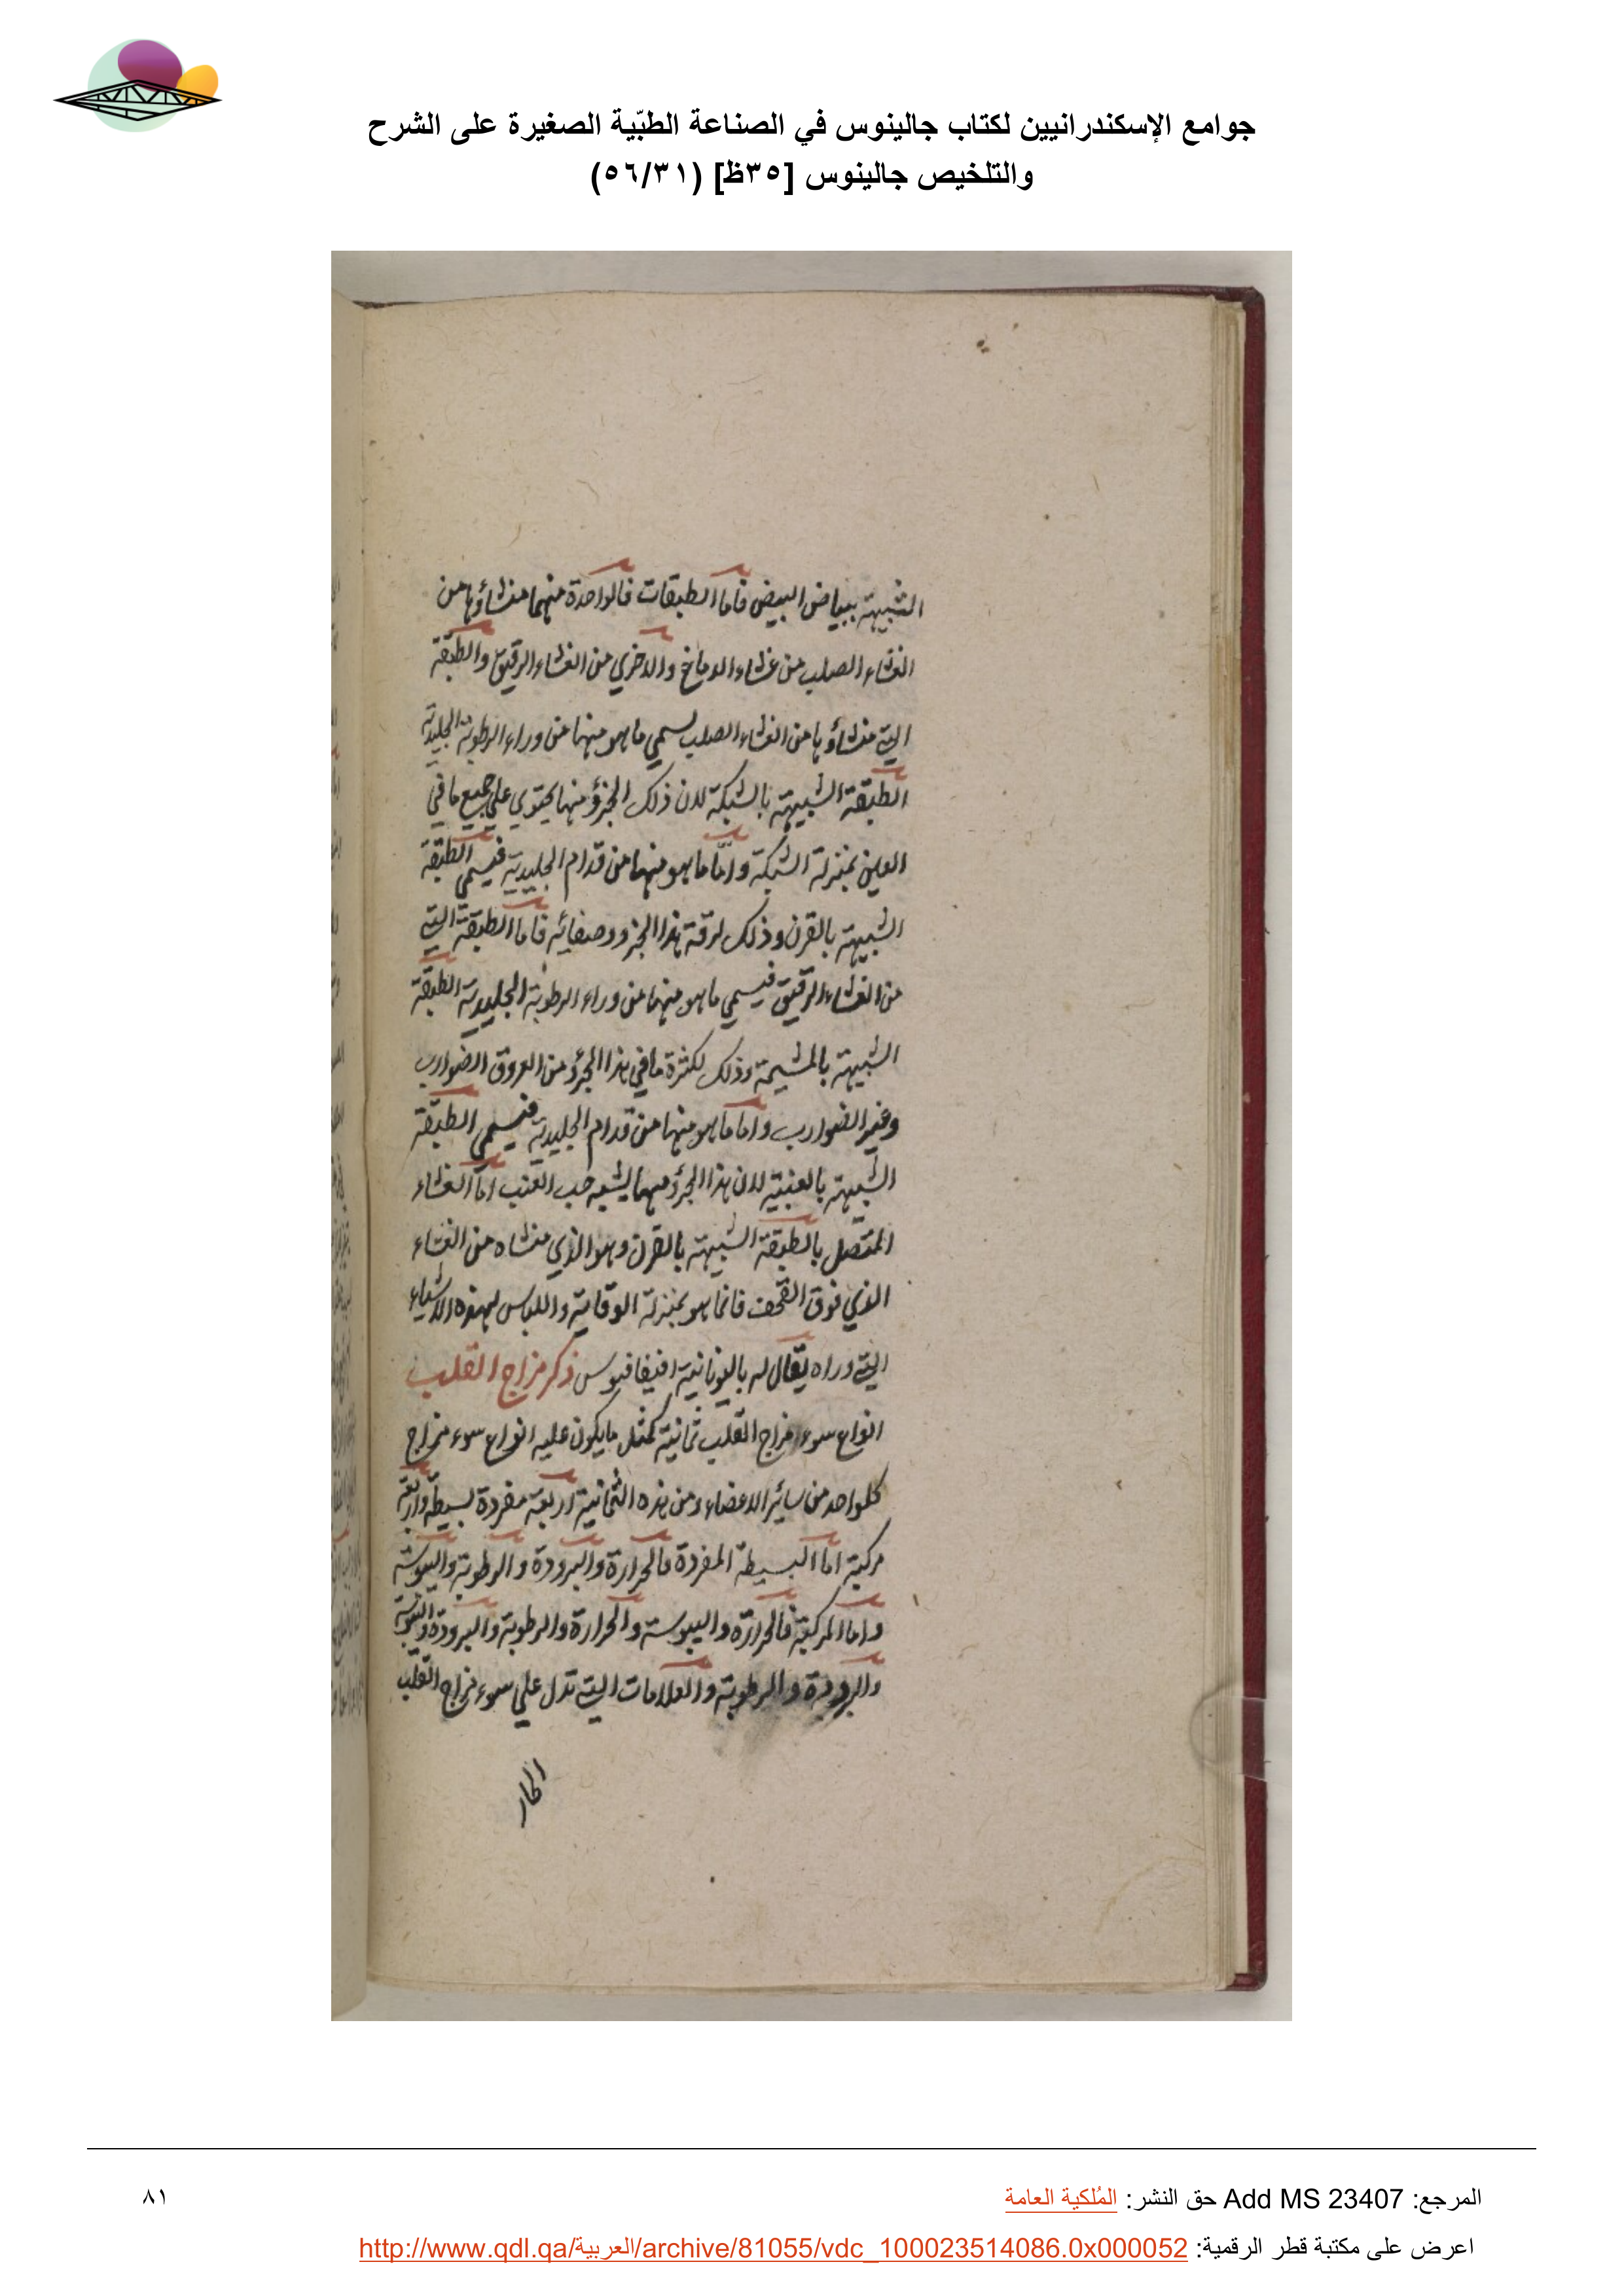 جوامع الإسكندرانيين لكتاب جالينوس في الصناعة الطبّية الصغيرة على الشرح
والتلخيص جالينوس [٣٥ظ] (٥٦/٣١)
الشبيهة ببياض البيض فاما الطبقات فالواحدة منهما منشاؤها من
الغشاء الصلب من غشاء الدماغ والاخري من الغشاء الرقيق والطبقة
التي منشاؤها من الغشاء الصلب يسمي ما هو منها من وراء الرطوبة الجليدية
الطبقة الشبيهة بالشبكة لان ذلك الجزؤ منها يحتوي علي جميع ما في
العين بمنزلة الشبكة وامّا ما هو منها من قدام الجليدية فيسمي الطبقة
الشبيهة بالقرن وذلك لرقة هذا الجزو وصفائه فاما الطبقة التي
من الغشاء الرقيق فيسمي ما هو منها من وراء الرطوبة الجليدية الطبقة
الشبيهة بالمشيمة وذلك لكثرة ما في هذا الجزؤ من العروق الضوارب
وغير الضوارب واما ما هو منها من قدام الجليدية فيسمي الطبقة
الشبيهة بالعنبية لان هذا الجزؤ منها يشبه حب العنب اما الغشاء
المتصل بالطبقة الشبيهة بالقرن وهو الذي منشاه من الغشاء
الذي فوق القحف فانما هو بمنزلة الوقاية واللباس لهذه الاشياء
التي وراه يقال له باليونانية افيفافيوس ذكر مزاج القلب
انواع سوء مزاج القلب ثمانية كمثل ما يكون عليه انواع سوء مزاج
كلواحد من سائر الاعضاء ومن هذه الثمانية اربعة مفردة بسيطة واربعة
مركبة اما البسيطة المفردة فالحرارة والبرودة والرطوبة واليبوسة
واما المركبة فالحرارة واليبوسة والحرارة والرطوبة والبرودة واليبوسة
والبرودة والرطوبة والعلامات التي تدل علي سوء مزاج القلب
الحار
المرجع: Add MS 23407 حق النشر: المُلكية العامة
٨١
اعرض على مكتبة قطر الرقمية: http://www.qdl.qa/العربية/archive/81055/vdc_100023514086.0x000052